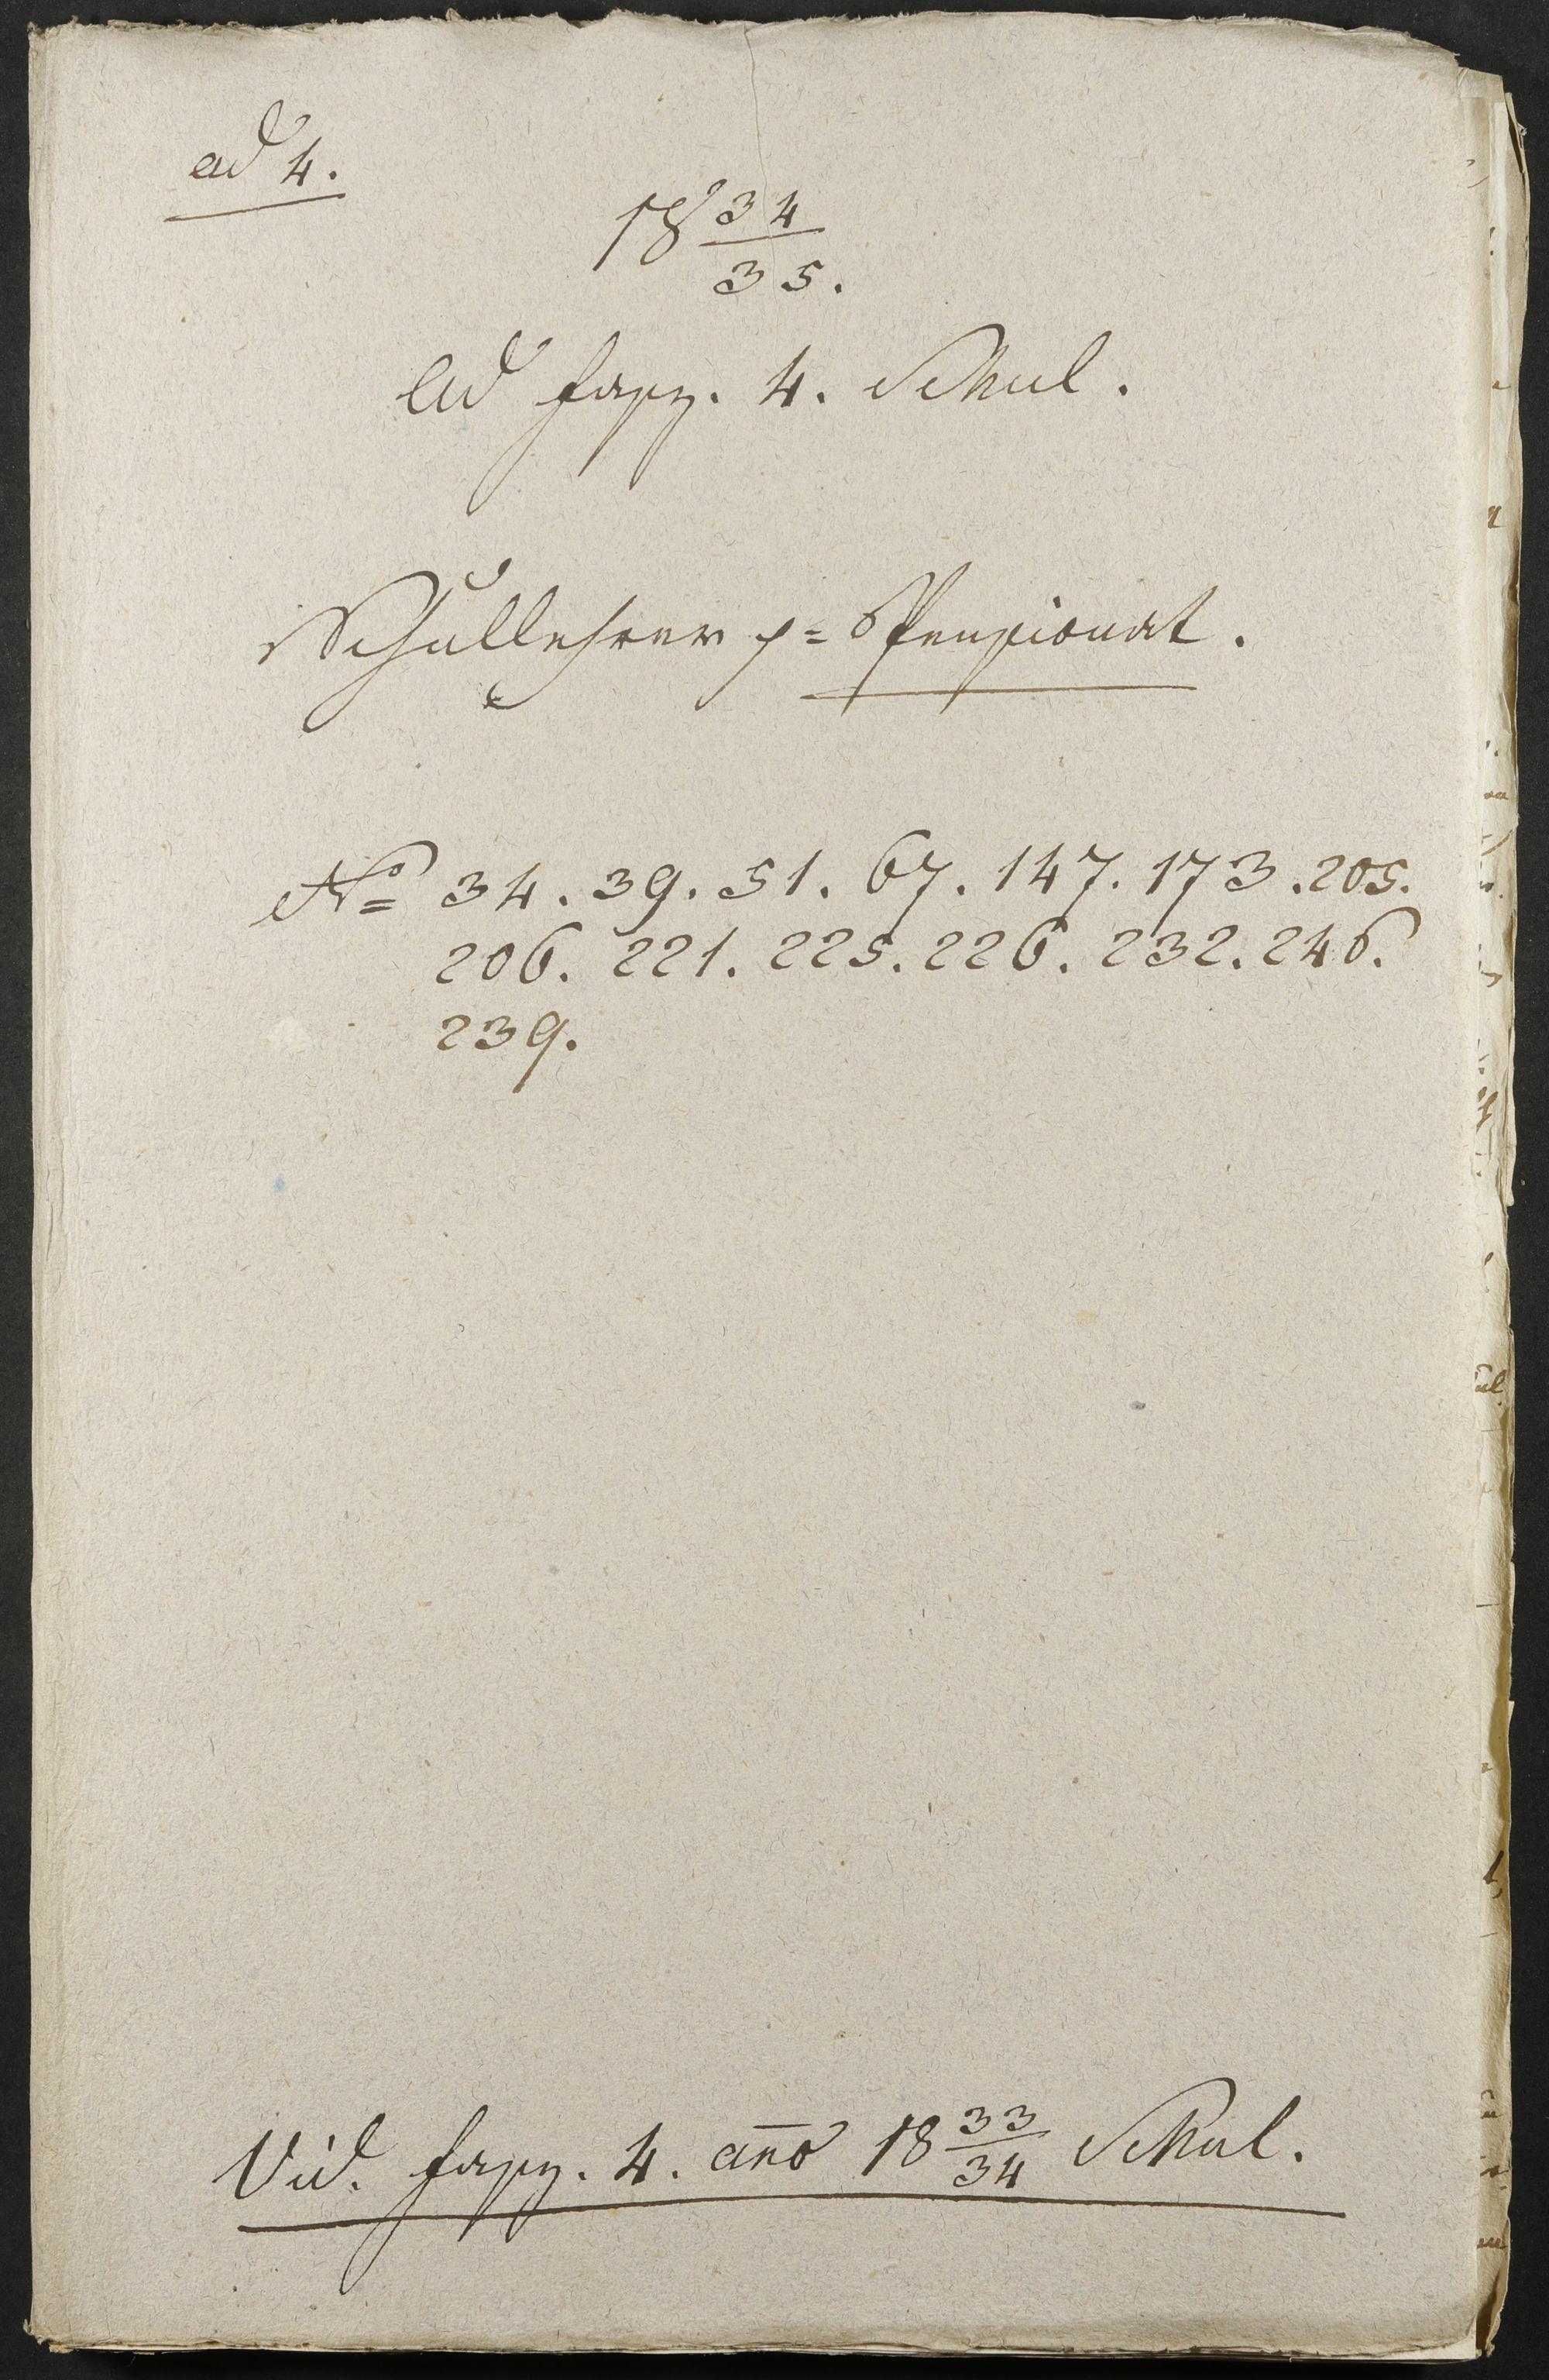 ad 4.
18 34/35.
Ad fasz. 4. Schul.
Schullehrer s= Pensionat.
No 34. 39. 51. 67. 147. 173. 205.
206. 221. 225. 226. 232. 246.
239.
Vid. fasz. 4. año 18 33/34 Schul.